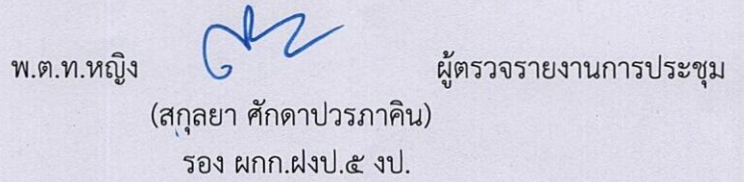 พ.ต.ท.หญิง ผู้ตรวจรายงานการประชุม
(สกุลยา ศักดาปวรภาคิน)
รอง ผกก.ฝงป.๕ งป.